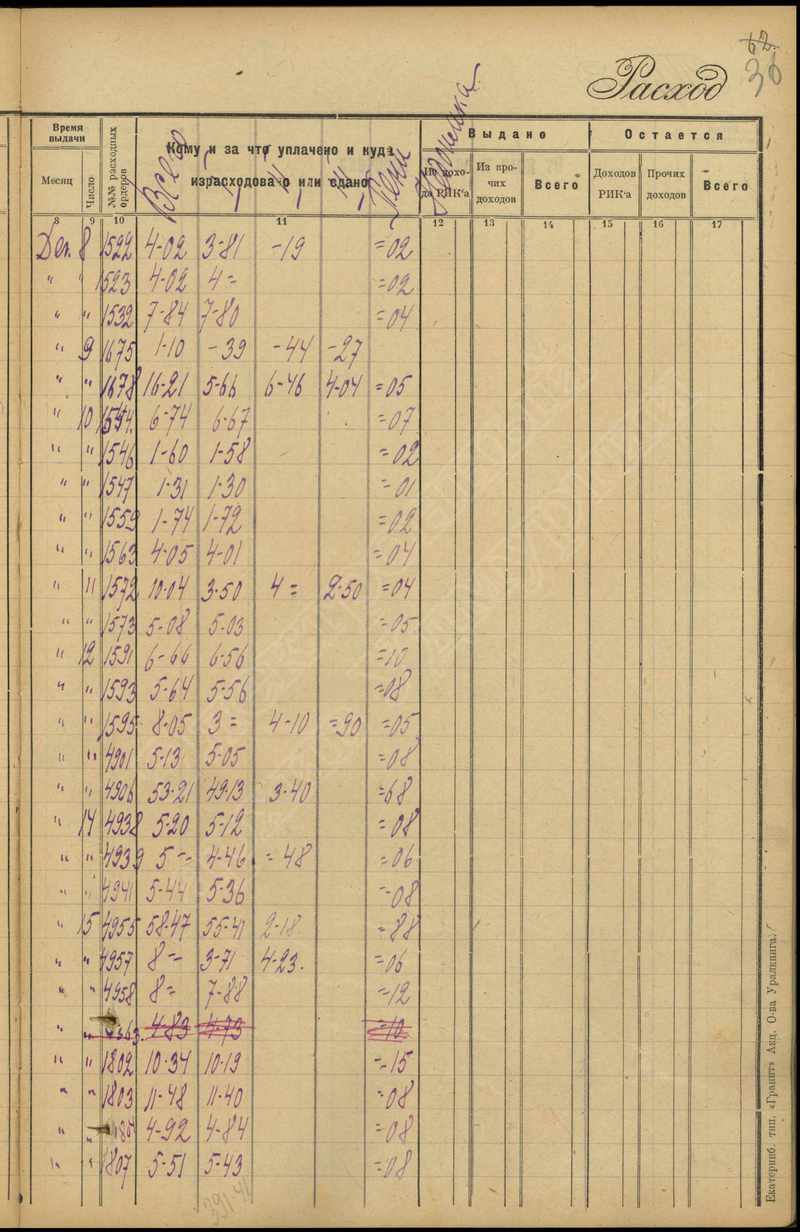 62.
36
Расход
Время выдачи
Месяц
Число
№№ расходных ордеров
Кому и за что уплачено и куда израсходовано или сдано
Всего
Пени
Выдано
Из дохода РИК'а
Из прочих доходов
Всего
Остается
Доходов РИК'а
Прочих доходов
Всего
8 9 10 11 12 13 14 15 16 17
Дек. 8 1522 4-02 3-81 -19 =02
" " 1523 4-02 4= =02
" " 1532 7-84 7-80 =04
" 9 1675 1-10 -39 -44 -27
" " 1678 16-21 5-66 6-46 4-04 =05
" 10 1544. 6-74 6-67 =07
" " 1546 1-60 1-58 =02
" " 1547 1-31 1-30 =01
" " 1559 1-74 1-72 =02
" " 1563 4-05 4-01 =04
" 11 1572 10-04 3-50 4= 2-50 =04
" " 1573 5-08 5-03 =05
" 12 1591 6-66 6-56 =10
" " 1593 5-64 5-56 =08
" " 1595 8-05 3= 4-10 =90 =05
" " 4901 5-13 5-05 =08
" " 4906 53-21 49-13 3-40 =68
" 14 4938 5-20 5-12 =08
" " 4939 5= 4-46 =48 =06
" " 4941 5-44 5-36 =08
" 15 4955 58-47 55-41 2-18 =88
" " 4957 8= 3-71 4-23. =06
" " 4958 8= 7-88 =12
" " 4-83 4-73 =10
" " 1802 10-34 10-19 =15
" " 1803 11-48 11-40 =08
" " 4-92 4-84 =08
" " 1807 5-51 5-43 =08
Екатеринб. тип. «Гранит» Акц. О-ва Уралкнига.